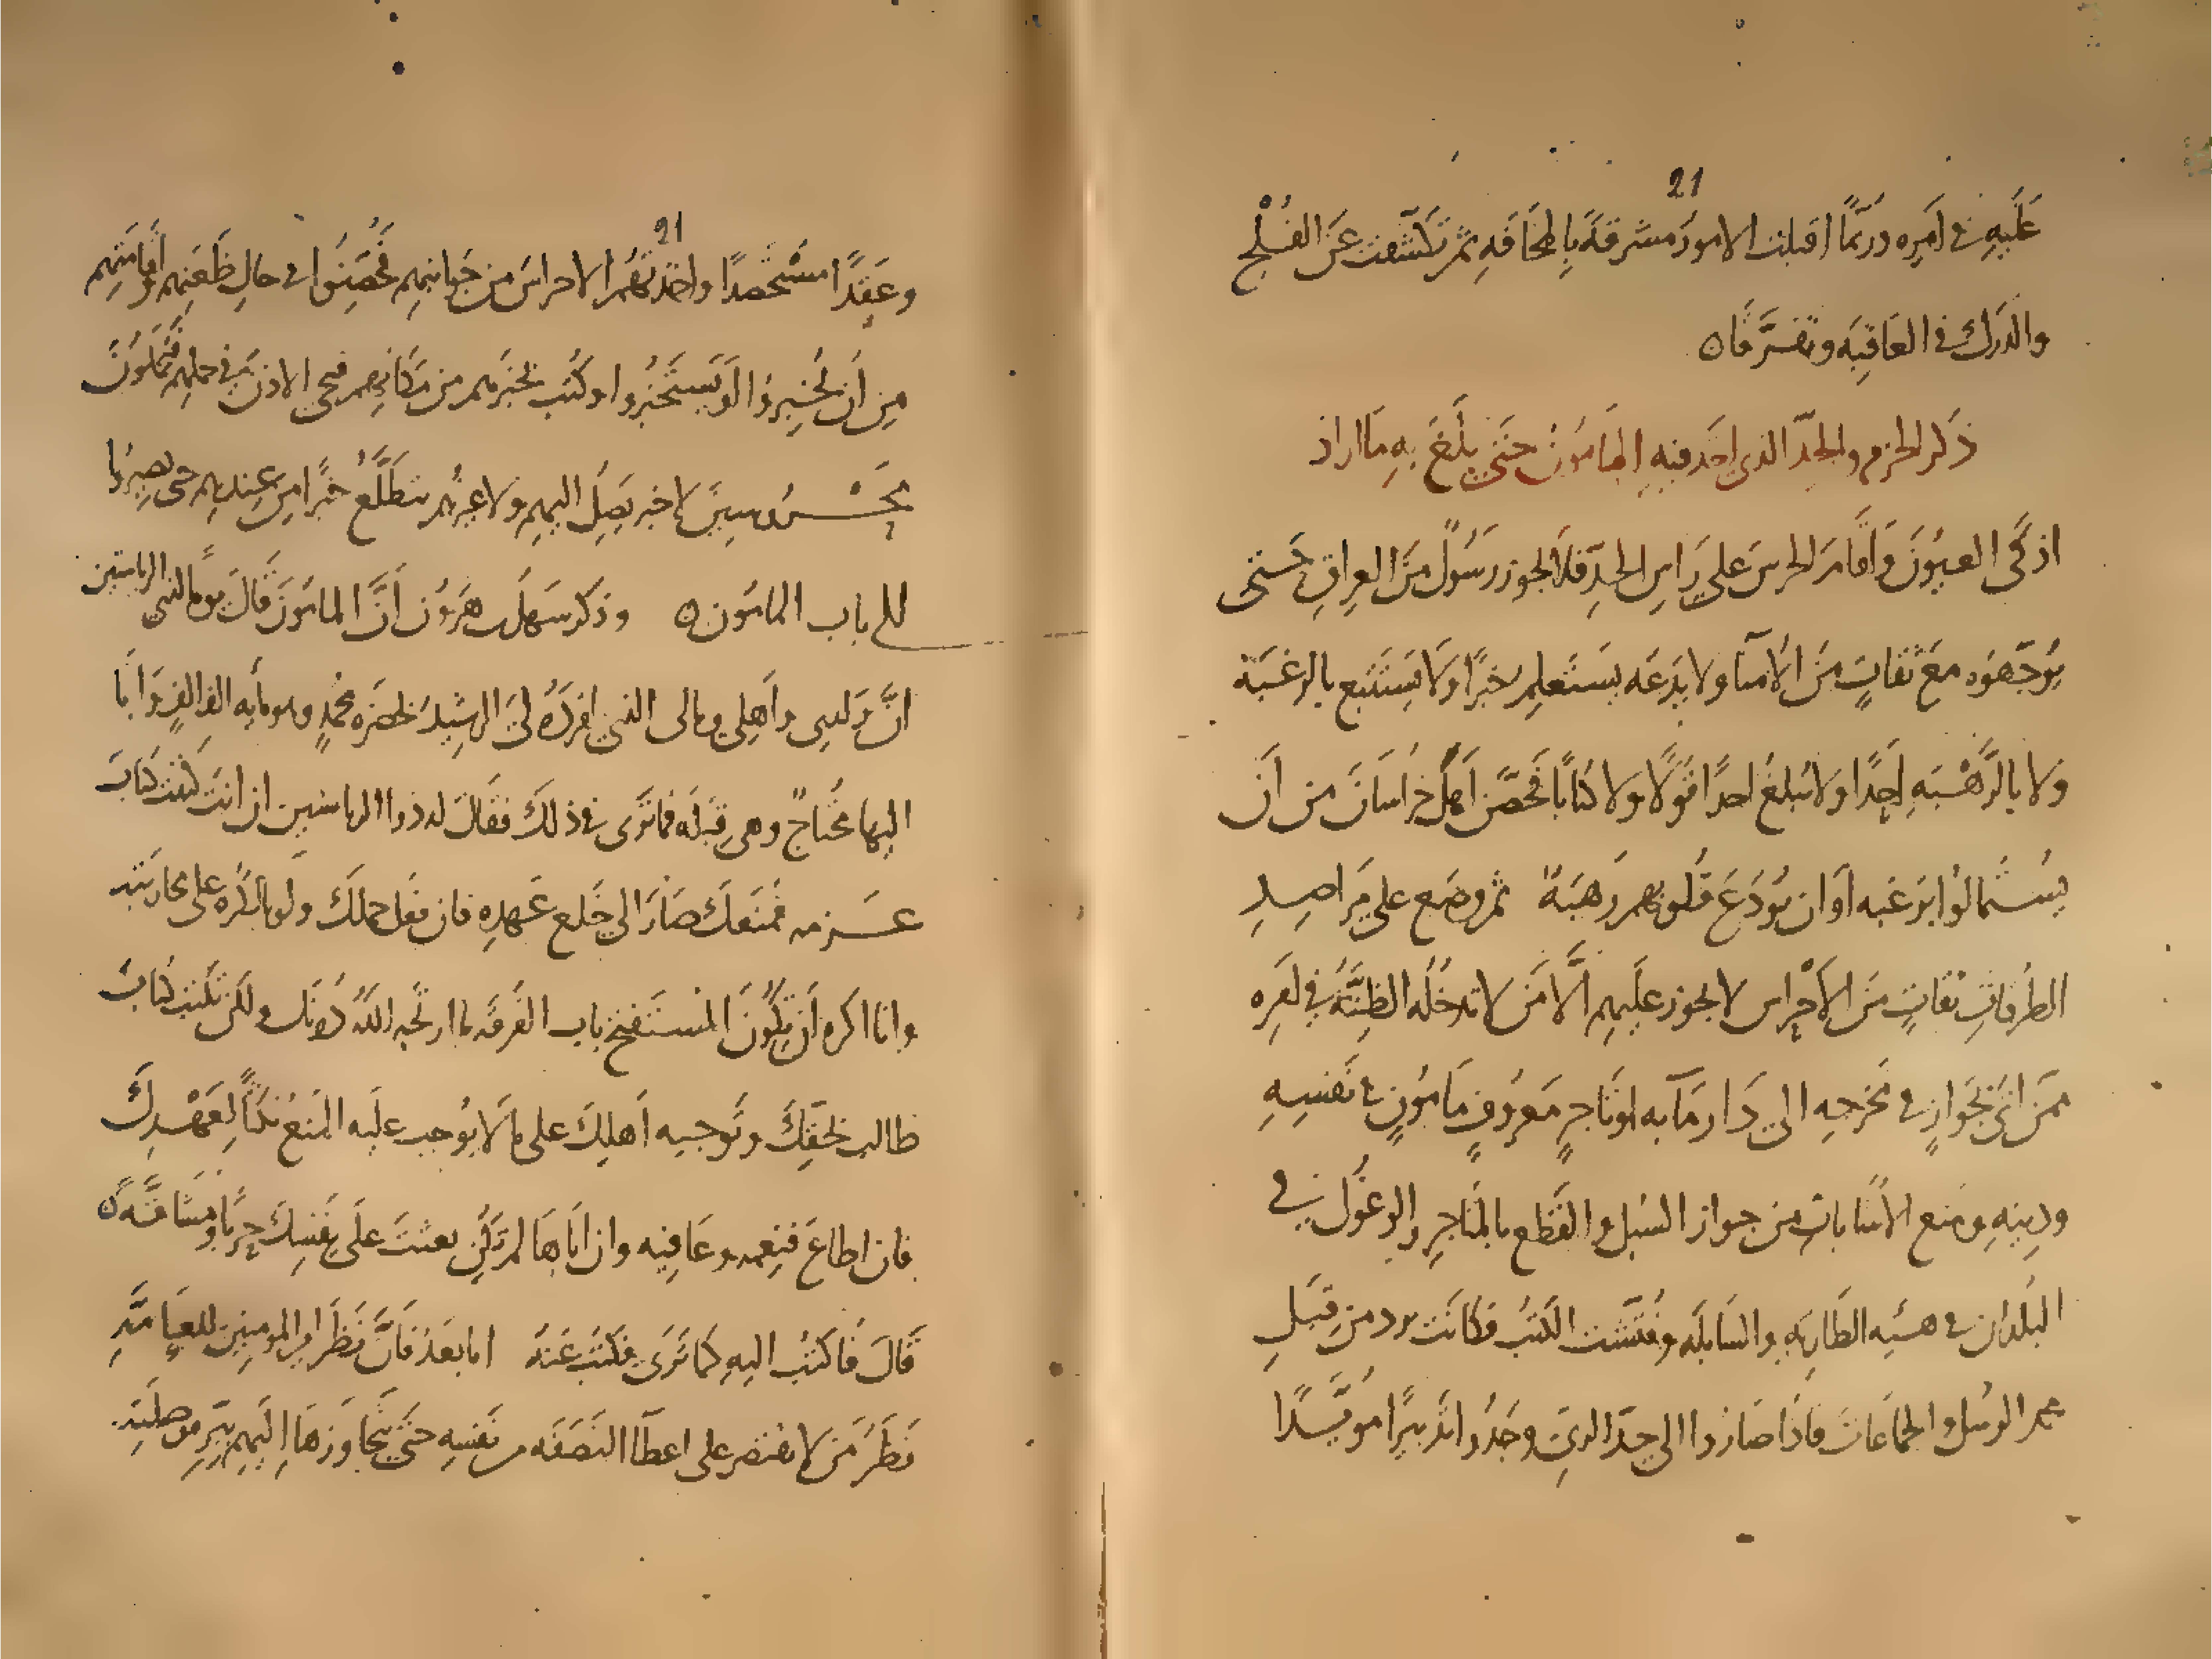 21
عَلَيهِ في اَمرِه ورُبَّمَا اقبلت الامورُ مشرقَةً بِالمخَافَةِ ثمّ تكَشَّفت عَنَ الفُلْج
والدَرك في العَاقِبَه وتفرَّقا ه
ذكر الحزم والجدّ الذي اخَذ فيه المأمون حَتى بلَغَ بِهِ مَا اراد
اذكَى العيُونَ وَاقَامَ الحرسَ على رَاسِ الحدِّ فلا يجوز رَسُولٌ مِنَ العِراقِ حَتى
يُوَجّهوُه معَ ثقاتٍ مِنَ الأُمنَآ ولا يدَعَه يَستَعلِم خَبرًا وَلَا يَستَتبع بالرغبَة
ولا بالرَّهْبَهِ اَحدًا ولا يُبلغُ احدًا قَوْلًا ولا كتابًا فحصَّن اَهلَ خرُاسَانَ من اَن
يُستَمالُوا برَغبه اَوان يُودَعَ قُلُوبهم رَهبَةً ثم وضع على مَراصِدِ
الطُرقاتِ ثقاتٍ مِنَ الاَحْراس لا يجوز علَيهم الَّا مَن لا تدخُلُه الظِنَّةُ في اَمره
ممن اتى بجَوازٍ في مخرجه الى دَار مَآبه او تَاجر مَعرُوفٍ مَامُونٍ في نفسِهِ
ودِينِهِ ومنع الاشَابَات من جواز السُبل والقَطع بالمتَاجر والوغُول في
البُلدَان في هَيئه الطَاريَه والسَابلَه وفُتّشت الكتبُ فكانَت ... من قِبَلِ
... الرسُل والجماعَات فاذا صَارُوا الى حدّ الريّ وجَدُوا تدبيرًا مُؤيَّدًا
21
وعَقدًا مسْتَحصدًا واخذتهُم الاحراسُ من جَوانبهم فحُصِّنوا في حَالِ ظَعنِهم واقامَتِهم
مِن اَن يُخبِروا اَو يَستَخبرُوا وكُتب بخبرهم من مكَانهم فيجي الاذن في حملِهم فيُحملونَ
مَحْرُوسينَ لا خبر يَصِلُ اليهم ولا غيرهُم يَتطَلَّعُ خبرًا من عِندهم حتى يصيرُوا
الى باب المامُون ه وذكر سَهل بن هَرُون اَنَّ المامُونَ قَالَ يومًا لذي الرياستين
اِنَّ وَلدي واَهلي ومالى الذي افردَهُ ليَ الرشيدُ بحضرَه محُمَّدٍ وهو مائه الف الفٍ وَانا
اليها محُتاجٌ وهي قِبَلَه فما تَرى في ذلكَ فقالَ له ذوا الرياستين ان انتَ كَتبت كتابَ
عَزمه فمنَعكَ صَارَ الى خَلع عَهدِه فان فعَل حملَك ولَو بالكُره على محاربته
وانا اكره اَن تكُونَ المستَفتِحَ باب الفُرقَه ما ارتَجه اللهُ دُونَك ولكن تكتبُ كتابَ
طالب لحَقِّكَ وتَوجيه اَهلِكَ على ما لَا يُوجب علَيه المنعُ نكثًا لِعَهْدِكَ
فان اطاعَ فنِعمه وعَافيه وان اَباهَا لم تَكُن بعثتَ علَى نَفسِكَ حربًا ومُشَاقَّه ه
قَالَ فَاكتُب اليهِ كما تَرى فكتبَ عَنهُ اما بعَدُ فَاِنَّ نَظَرَ امير المومنينَ للعَامَّهِ
نَظَرَ مَن لا يقتصرُ على اعطآ النَصَفه من نَفسِهِ حَتى يتجاوزهَا اِلَيهم ببِرّه وصلته